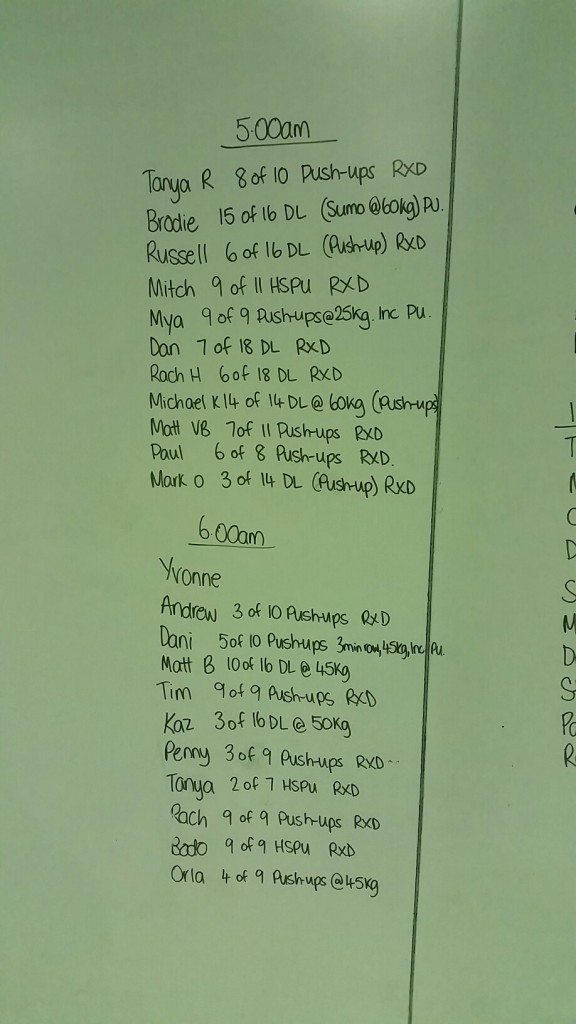 5.00am
Tanya R 8 of 10 Push-ups RXD
Brodie 15 of 16 DL (Sumo @60kg) PU.
Russell 6 of 16 DL (Push-up) RXD
Mitch 9 of 11 HSPU RXD
Mya 9 of 9 Push-ups@25kg. Inc PU.
Dan 7 of 18 DL RXD
Rach H 6 of 18 DL RXD
Michael K 14 of 14 DL @ 60kg (Push-ups)
Matt VB 7 of 11 Push-ups RXD
Paul 6 of 8 Push-ups RXD.
Mark O 3 of 14 DL (Push-up) RXD
6.00am
Yvonne
Andrew 3 of 10 Push-ups RXD
Dani 5 of 10 Push-ups 3min row, 45kg, Inc Pu.
Matt B 10 of 16 DL @ 45kg
Tim 9 of 9 Push-ups RXD
Kaz 3 of 16 DL @ 50kg
Penny 3 of 9 Push-ups RXD--
Tanya 2 of 7 HSPU RXD
Rach 9 of 9 Push-ups RXD
Bodo 9 of 9 HSPU RXD
Orla 4 of 9 Push-ups @45kg